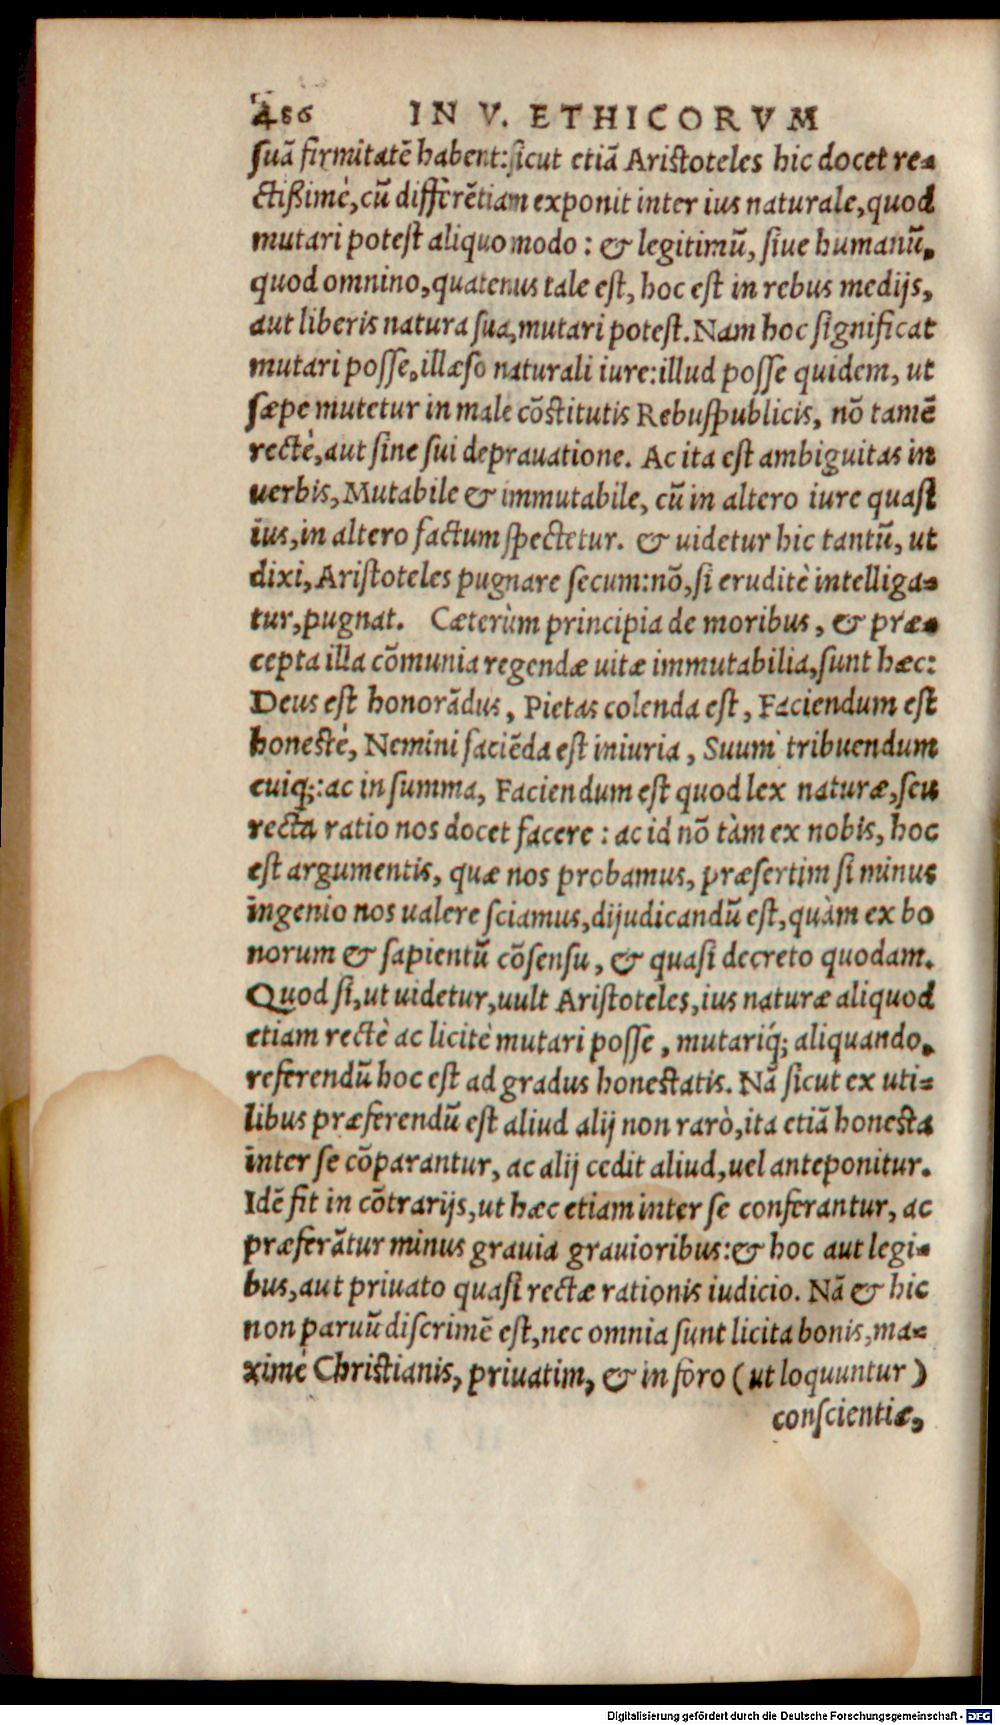 486 IN V. ETHICORVM
ſuã firmitatẽ habent:ſicut etiã Ariſtoteles hic docet re-
ctißimè,cũ differẽtiam exponit inter ius naturale,quod
mutari poteſt aliquo modo: & legitimũ, ſiue humanũ,
quod omnino,quatenus tale eſt, hoc eſt in rebus medijs,
aut liberis natura ſua,mutari poteſt.Nam hoc ſignificat
mutari poſſe,illæſo naturali iure:illud poſſe quidem, ut
ſæpe mutetur in male cõſtitutis Rebuſpublicis, nõ tamẽ
rectè,aut ſine ſui deprauatione. Ac ita eſt ambiguitas in
uerbis,Mutabile & immutabile, cũ in altero iure quaſi
ius,in altero factum ſpectetur. & uidetur hic tantũ, ut
dixi,Ariſtoteles pugnare ſecum:nõ,ſi eruditè intelliga-
tur,pugnat. Cæterùm principia de moribus, & præ-
cepta illa cõmunia regendæ uitæ immutabilia,ſunt hæc:
Deus eſt honorãdus, Pietas colenda eſt, Faciendum eſt
honeſtè, Nemini faciẽda eſt iniuria, Suum tribuendum
cuiq;:ac in ſumma, Faciendum eſt quod lex naturæ,ſeu
recta ratio nos docet facere: ac id nõ tàm ex nobis, hoc
eſt argumentis, quæ nos probamus, præſertim ſi minus
ingenio nos ualere ſciamus,dijudicandũ eſt,quàm ex bo
norum & ſapientũ cõſenſu, & quaſi decreto quodam.
Quod ſi,ut uidetur,uult Ariſtoteles,ius naturæ aliquod
etiam rectè ac licitè mutari poſſe, mutariq́; aliquando,
referendũ hoc eſt ad gradus honeſtatis. Nã ſicut ex uti-
libus præferendũ eſt aliud alij non rarò,ita etiã honeſta
inter ſe cõparantur, ac alij cedit aliud,uel anteponitur.
Idẽ fit in cõtrarijs,ut hæc etiam inter ſe conferantur, ac
præferãtur minus grauia grauioribus:& hoc aut legi-
bus,aut priuato quaſi rectæ rationis iudicio. Nã & hic
non paruũ diſcrimẽ eſt,nec omnia ſunt licita bonis,ma-
ximè Chriſtianis, priuatim, & in foro (ut loquuntur)
conſcientiæ,
Digitalisierung gefördert durch die Deutsche Forschungsgemeinschaft - DFG